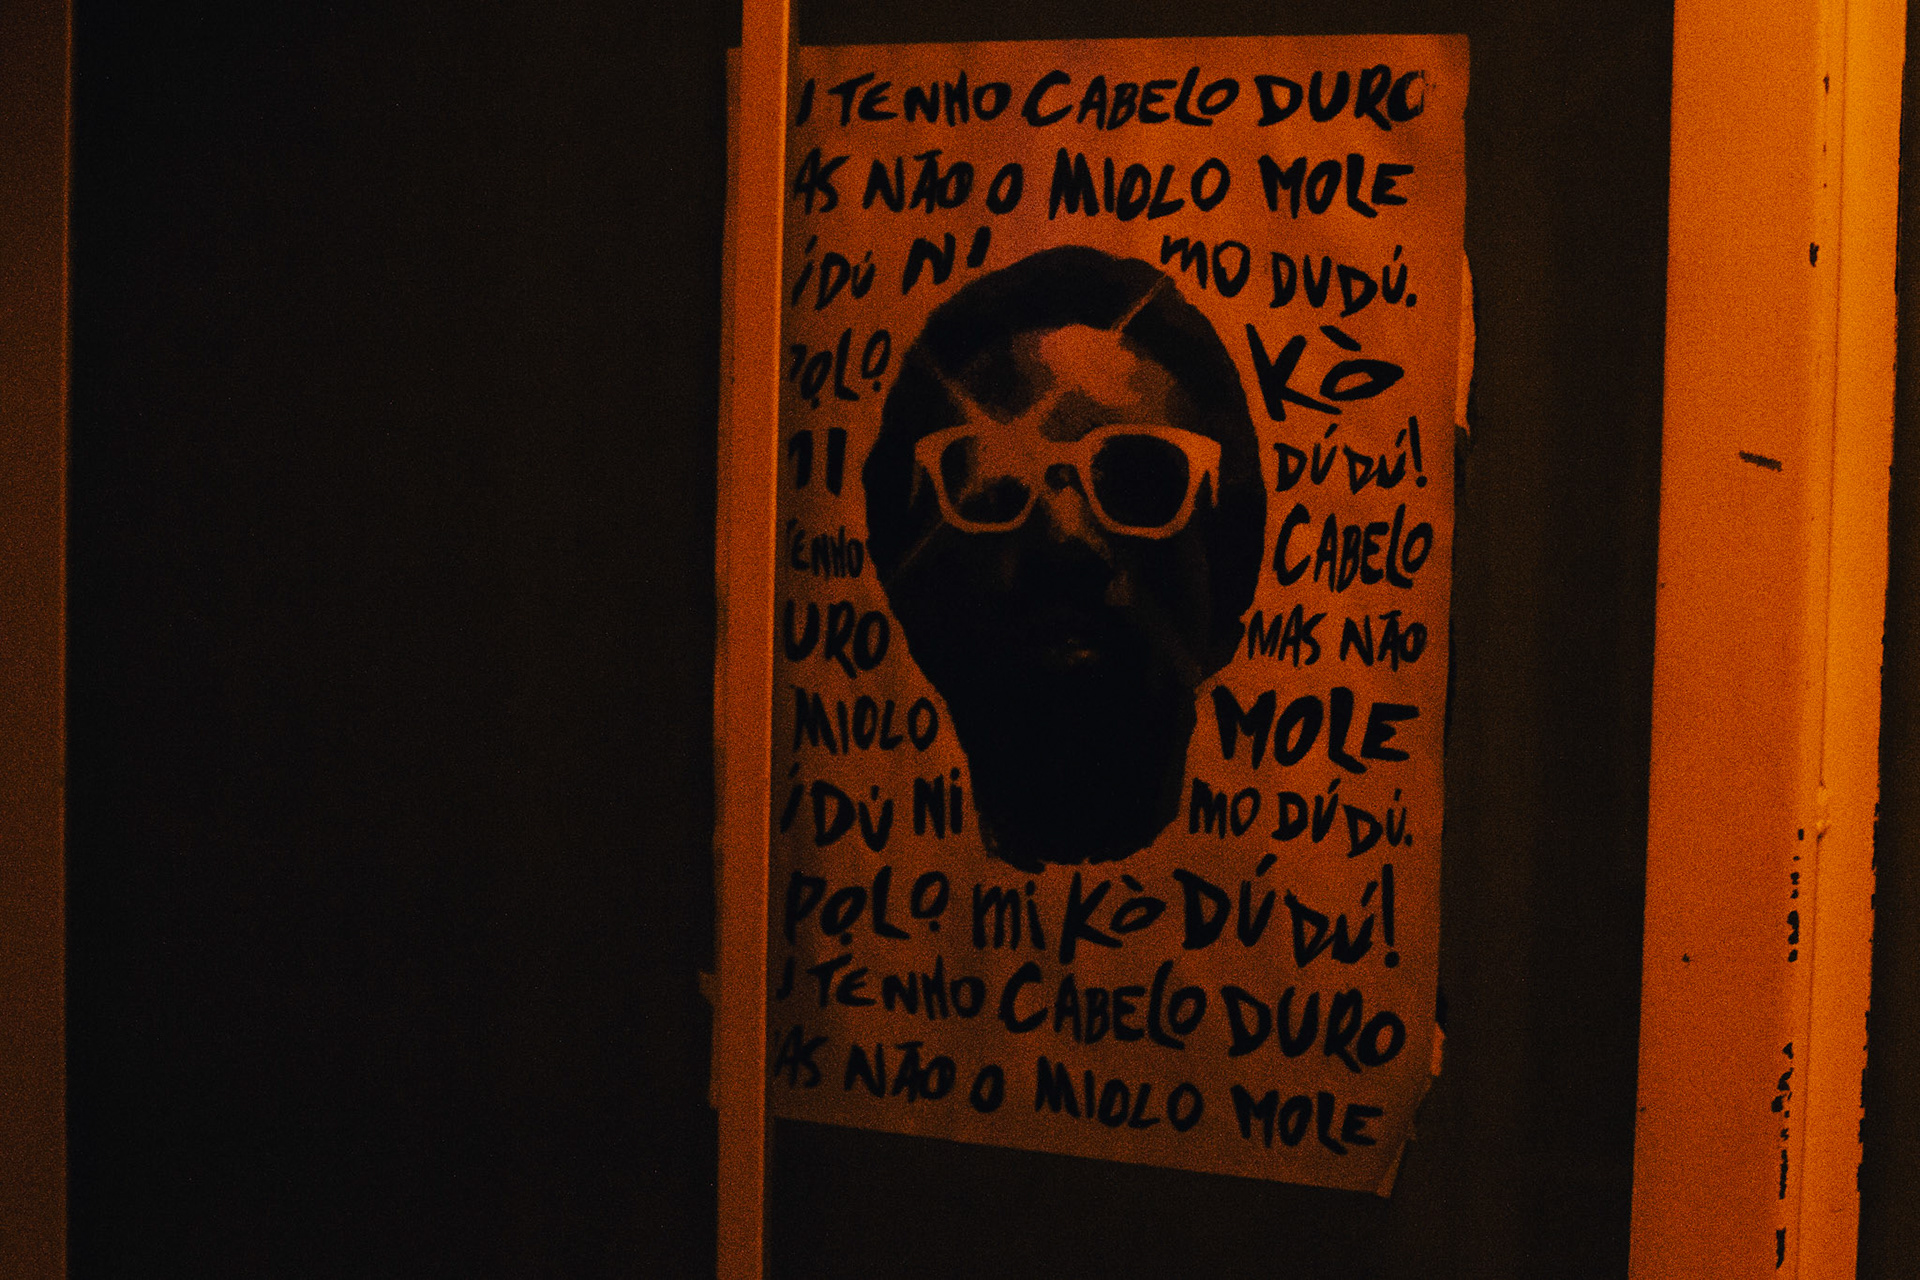 TENHO CABELO DURO
NÃO O MIOLO MOLE
DÚ NI MO DUDÚ.
KÒ
DÚDÚ!
CABELO
MAS NÃO
MIOLO MOLE
DÚ NI MO DÚDÚ.
PỌLỌ MI KÒ DÚDÚ!
TENHO CABELO DURO
NÃO O MIOLO MOLE